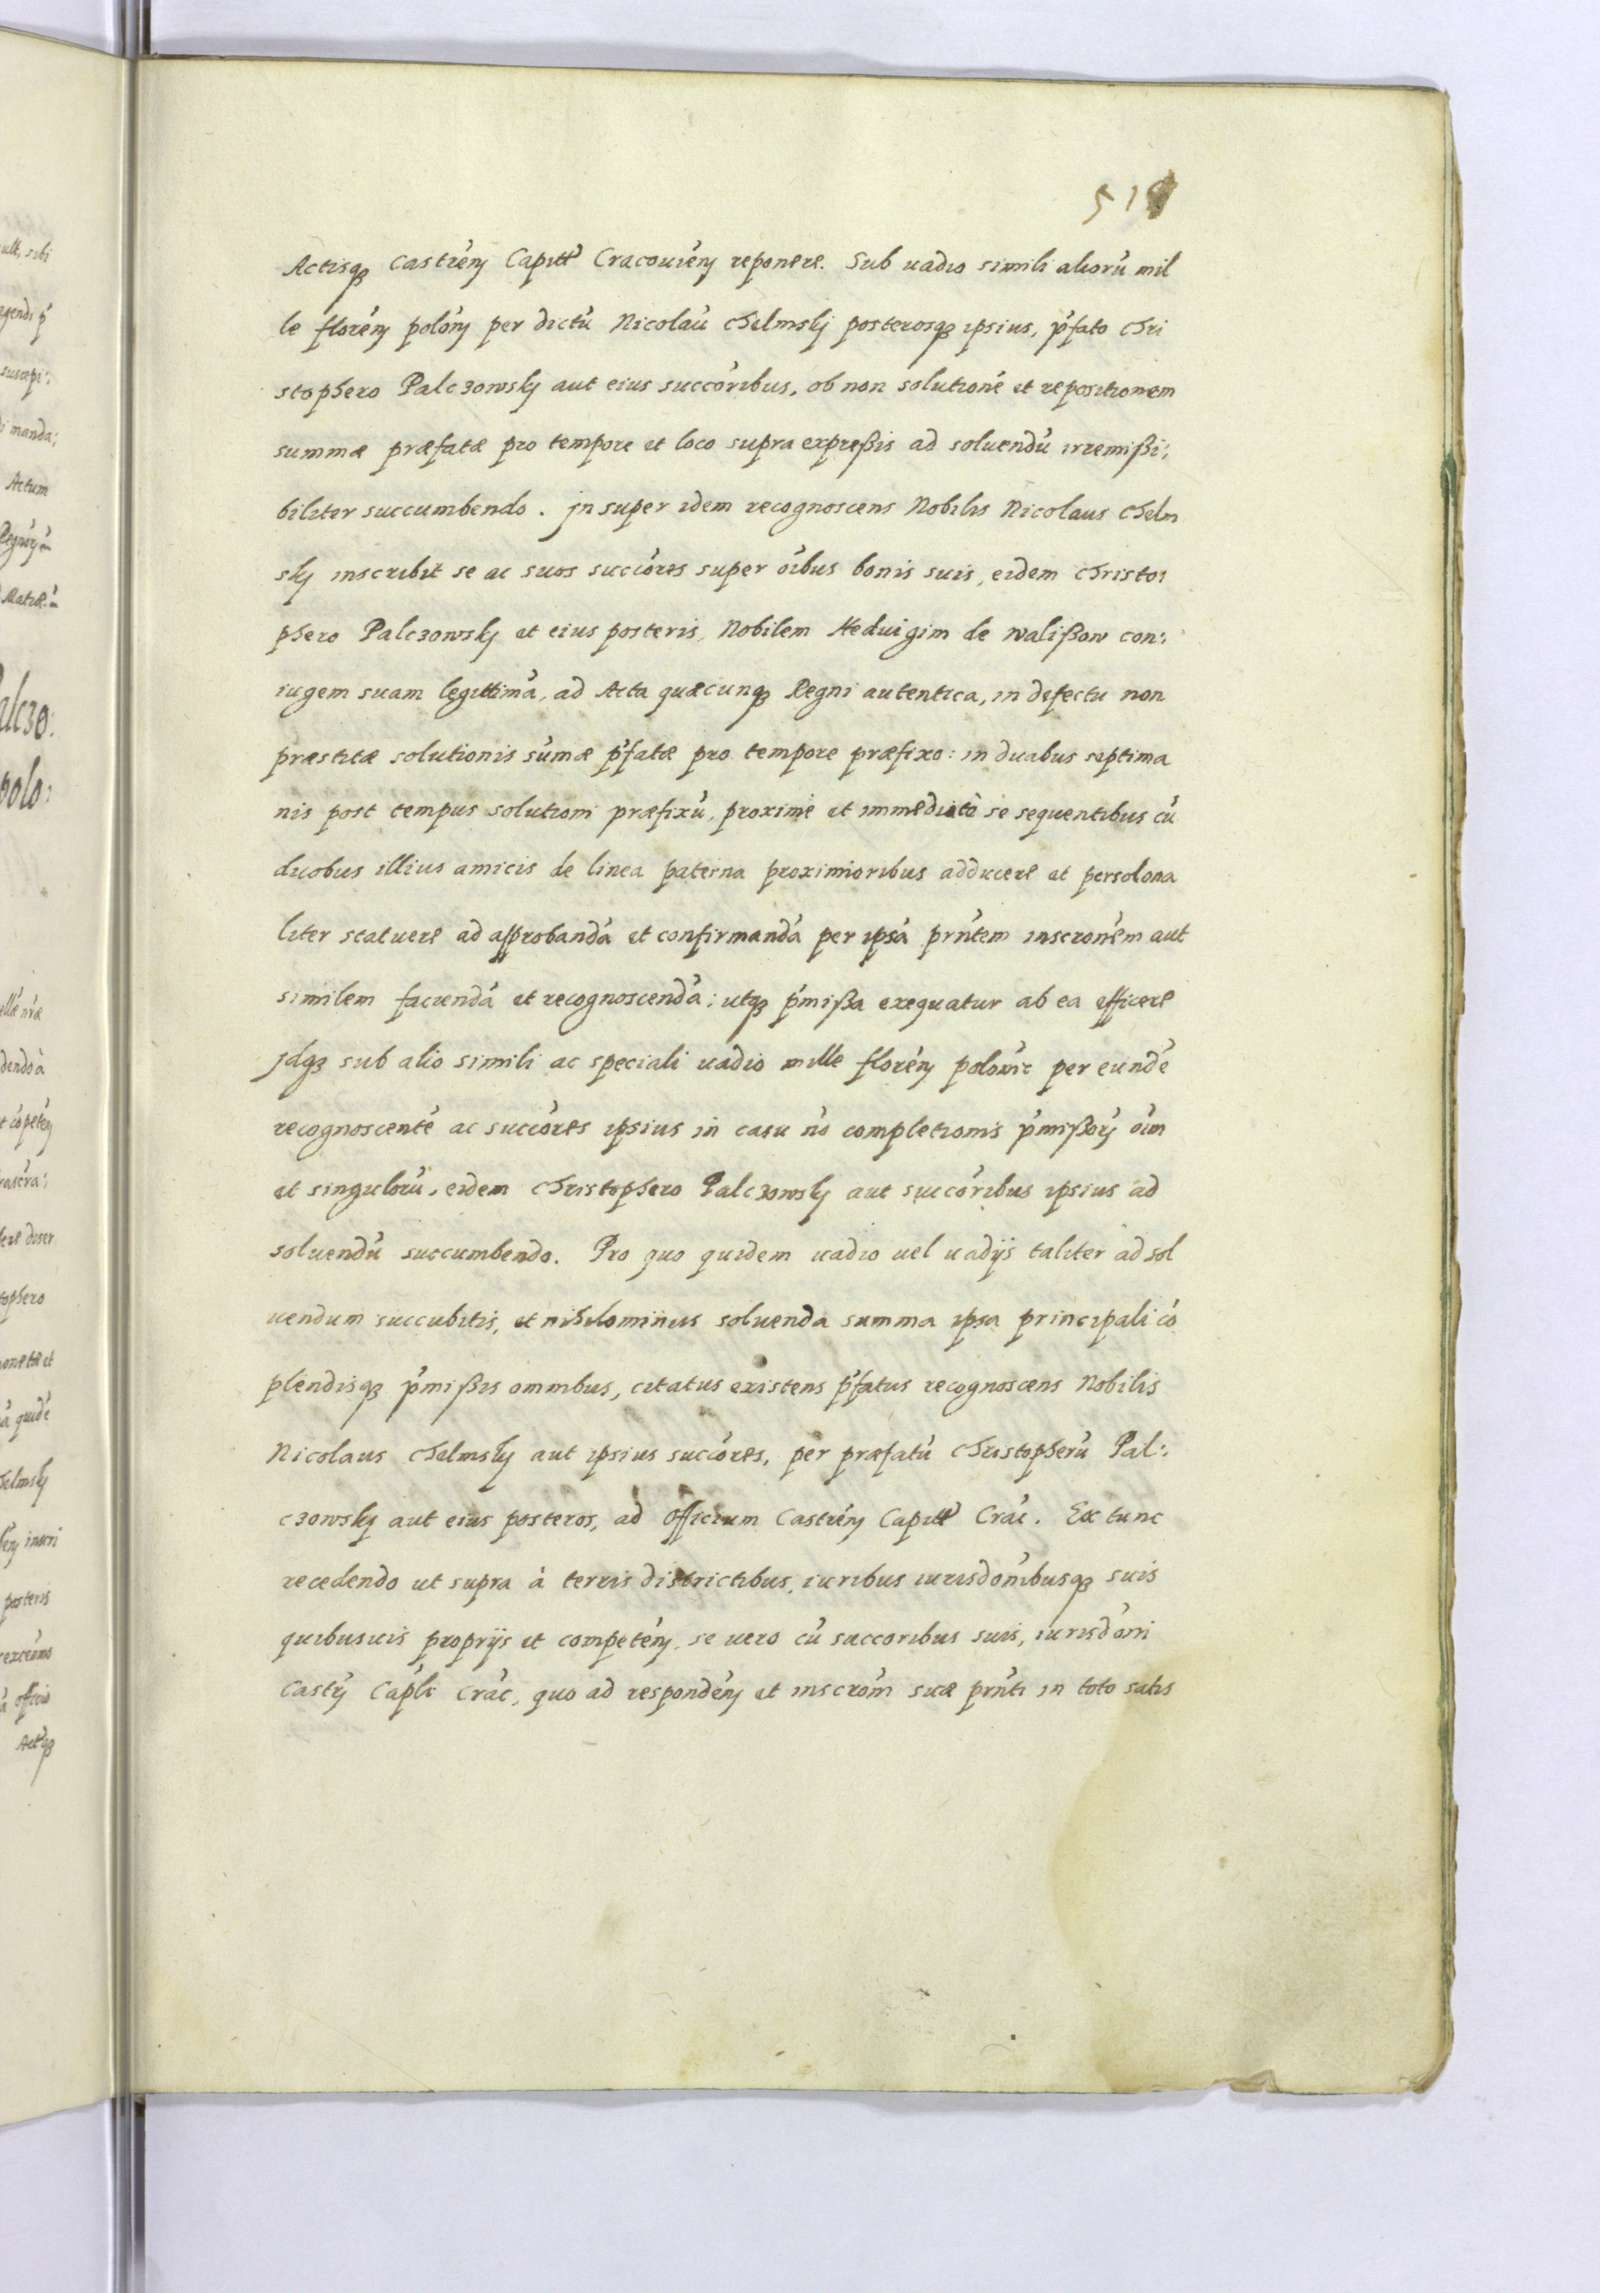 511
Actisq3 Castrén̄ Capitt̄ Cracouién̄ reponere. Sub uadio simili aliorū mil
le florén̄ polón̄ per dictū Nicolaū Chelmskӱ posterosq3 ipsius, p̄fato Chri
stophero Palczowskӱ aut eius succōribus, ob non solutionē et repositionem
summæ præfatæ pro tempore et loco supra expreßis ad soluendū irremißi:
biliter succumbendo. Jn super idem recognoscens Nobilis Nicolaus Chelm
skӱ inscribit se ac suos succōres super oībus bonis suis, eidem Christo:
phero Palczowskӱ et eius posteris, Nobilem Heduigim de Walißow con:
iugem suam legittimā, ad Acta quæcunq3 Regni autentica, in defectu non
præstitæ solutionis sūmæ p̄fatæ pro tempore præfixo: in duabus septima
nis post tempus solutioni præfixū, proxime et immediatè se sequentibus cū
duobus illius amicis de linea paterna proximioribus adducere et persolona
liter statuere ad approbandā et confirmandā per ipsā prn̄tem inscronēm aut
similem faciendā et recognoscendā: utq3 p̄mißa exequatur ab ea efficere
Jdq3 sub alio simili ac speciali uadio mille florén̄ polōnic per eundē
recognoscentē ac succōres ipsius in casu nō completionis p̄mißorӯ oīm
et singulorū, eidem Christophero Palczowskӱ aut succōribus ipsius ad
soluendū succumbendo. Pro quo quidem uadio uel uadijs taliter ad sol
uendum succubitis, et nihilominus soluenda summa ipsa principali cō
plendisq3 p̄mißis omnibus, citatus existens p̄fatus recognoscens Nobilis
Nicolaus Chelmskӱ aut ipsius succōres, per præfatū Christopherū Pal:
czowskӱ aut eius posteros, ad Officium Castrén̄ Capitt̄ Crác̄. Ex tunc
recedendo ut supra à terris districtibus, iuribus iurisdōnibusq3 suis
quibusuis proprijs et competén̄, se uero cū succoribus suis, iurisdōni
Castr̄ Cap̄lc Crāc, quo ad respondén̄ et inscrōm̄ suæ prn̄ti in toto satis